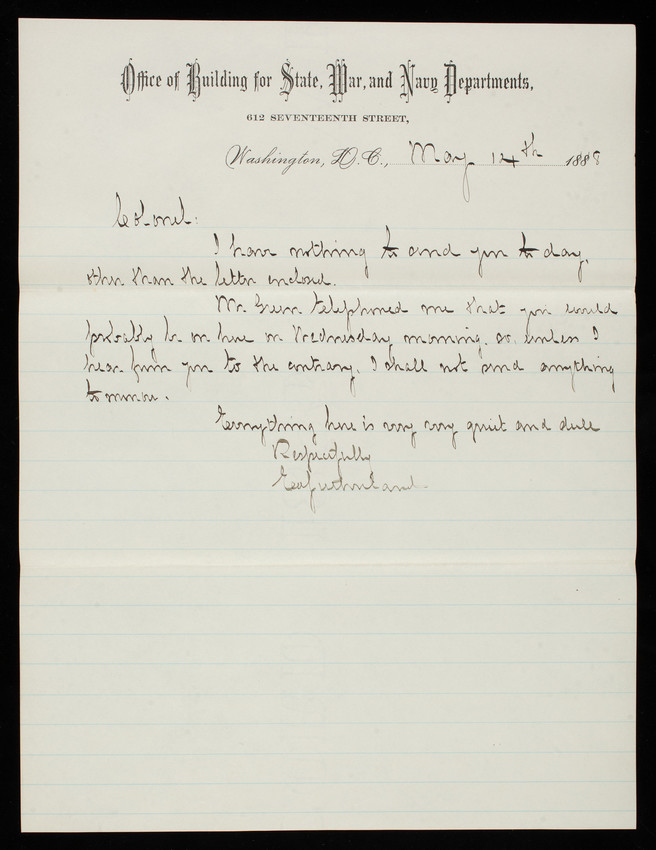 Office of Building for State, War, and Navy Departments,
612 SEVENTEENTH STREET,
Washington, D.C., May 14th 1888
Colonel:
I have nothing to send you to day,
other than the letter enclosed.
Mr. Green telephoned me that you would
probably be on here on Wednesday morning. so, unless I
hear from you to the contrary, I shall not send anything
tomorrow.
Everything here is very very quiet and dull
Respectfully
Sutherland